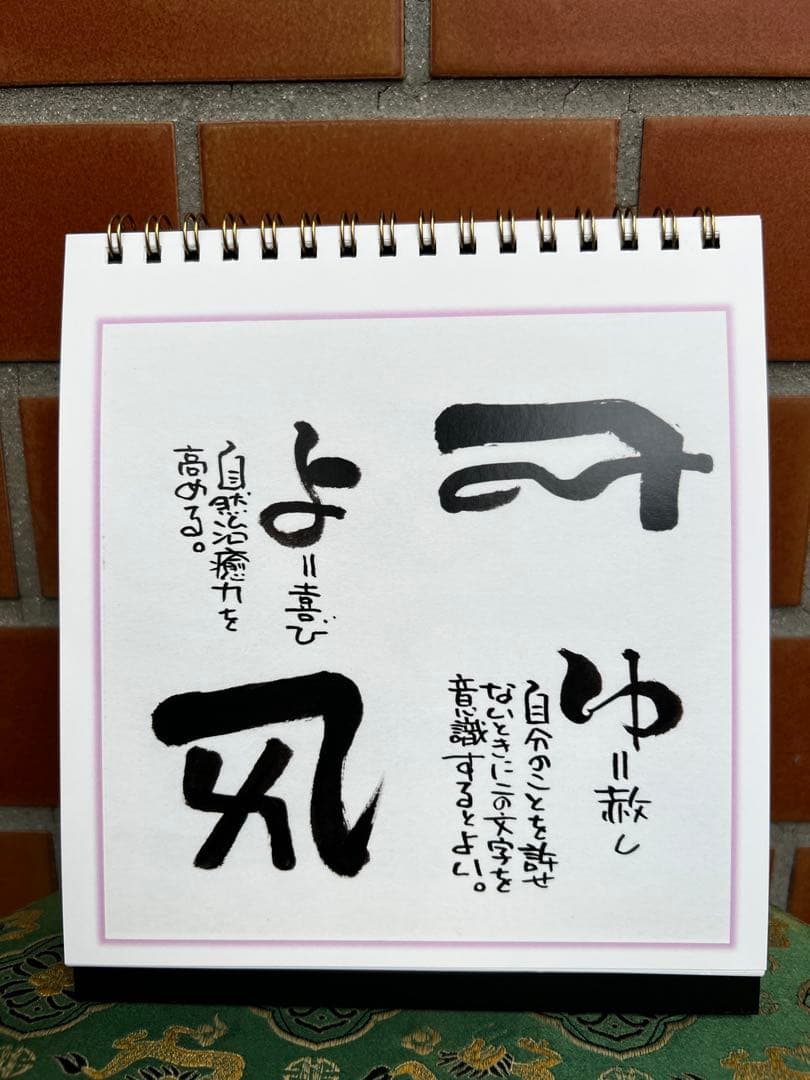 ゆ=赦し
自分のことを許せ
ないときにこの文字を
意識するとよい。
よ=喜び
自然治癒力を
高める。